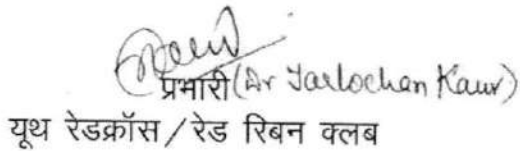 प्रभारी (Dr Tarlochan Kaur)
यूथ रेडक्रॉस/रेड रिबन क्लब